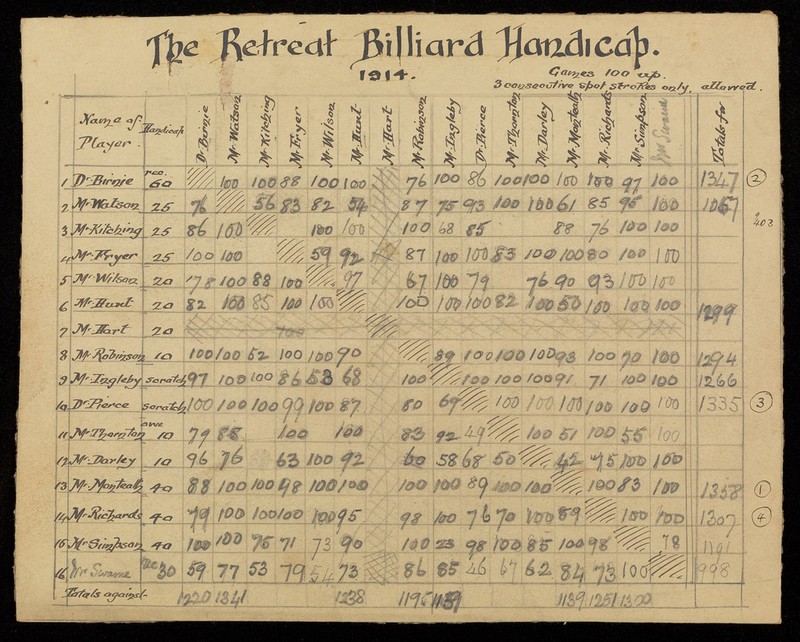 The Retreat Billiard Handicap.
1914.
Games 100 up.
3 consecutive spot strokes only, allowed.
Name of Player. Handicap Dr Birnie Mr Watson Mr Kitching Mr Fryer Mr Wilson Mr Hunt Mr Hart Mr Robinson Mr Ingleby Dr Pierce Mr Thornton Mr Darley Mr Monteath Mr Richards Mr Simpson Mr Swame Totals for
1 Dr Birnie rec. 60 100 100 88 100 100 76 100 86 100 100 100 100 97 100 1347 2
2 Mr Watson 25 76 56 83 82 54 87 75 93 100 100 61 85 95 100 1067
3 Mr Kitching 25 86 100 100 100 100 68 85 88 76 100 100
4 Mr Fryer 25 100 100 59 92 87 100 100 83 100 100 80 100 100
5 Mr Wilson 20 78 100 88 100 97 67 100 79 76 90 93 100 100
6 Mr Hunt 20 82 100 85 100 100 100 100 100 82 100 50 100 100 100 1299
7 Mr Hart 20
8 Mr Robinson 10 100 100 52 100 100 90 89 100 100 100 93 100 70 100 1294
9 Mr Ingleby scratch 97 100 100 86 53 68 100 100 100 100 91 71 100 100 1266
10 Dr Pierce scratch 100 100 100 99 100 87 80 69 100 100 100 100 100 100 1335 3
11 Mr Thornton owe 10 79 88 100 100 83 92 49 100 51 100 55 100
12 Mr Darley 10 96 76 63 100 92 60 58 68 50 42 75 100 100
13 Mr Monteath 40 88 100 100 98 100 100 100 100 89 100 100 100 83 100 1358 1
14 Mr Richards 40 79 100 100 100 100 95 98 100 76 70 100 89 100 100 1307 4
15 Mr Simpson 40 100 100 75 71 73 90 100 23 98 100 85 100 98 78 1191
16 Mr Swame rec 30 59 77 53 79 54 73 86 85 46 67 62 84 73 100 998
Totals against- 1220 1341 1238 1195 1139 1139 1251 1300